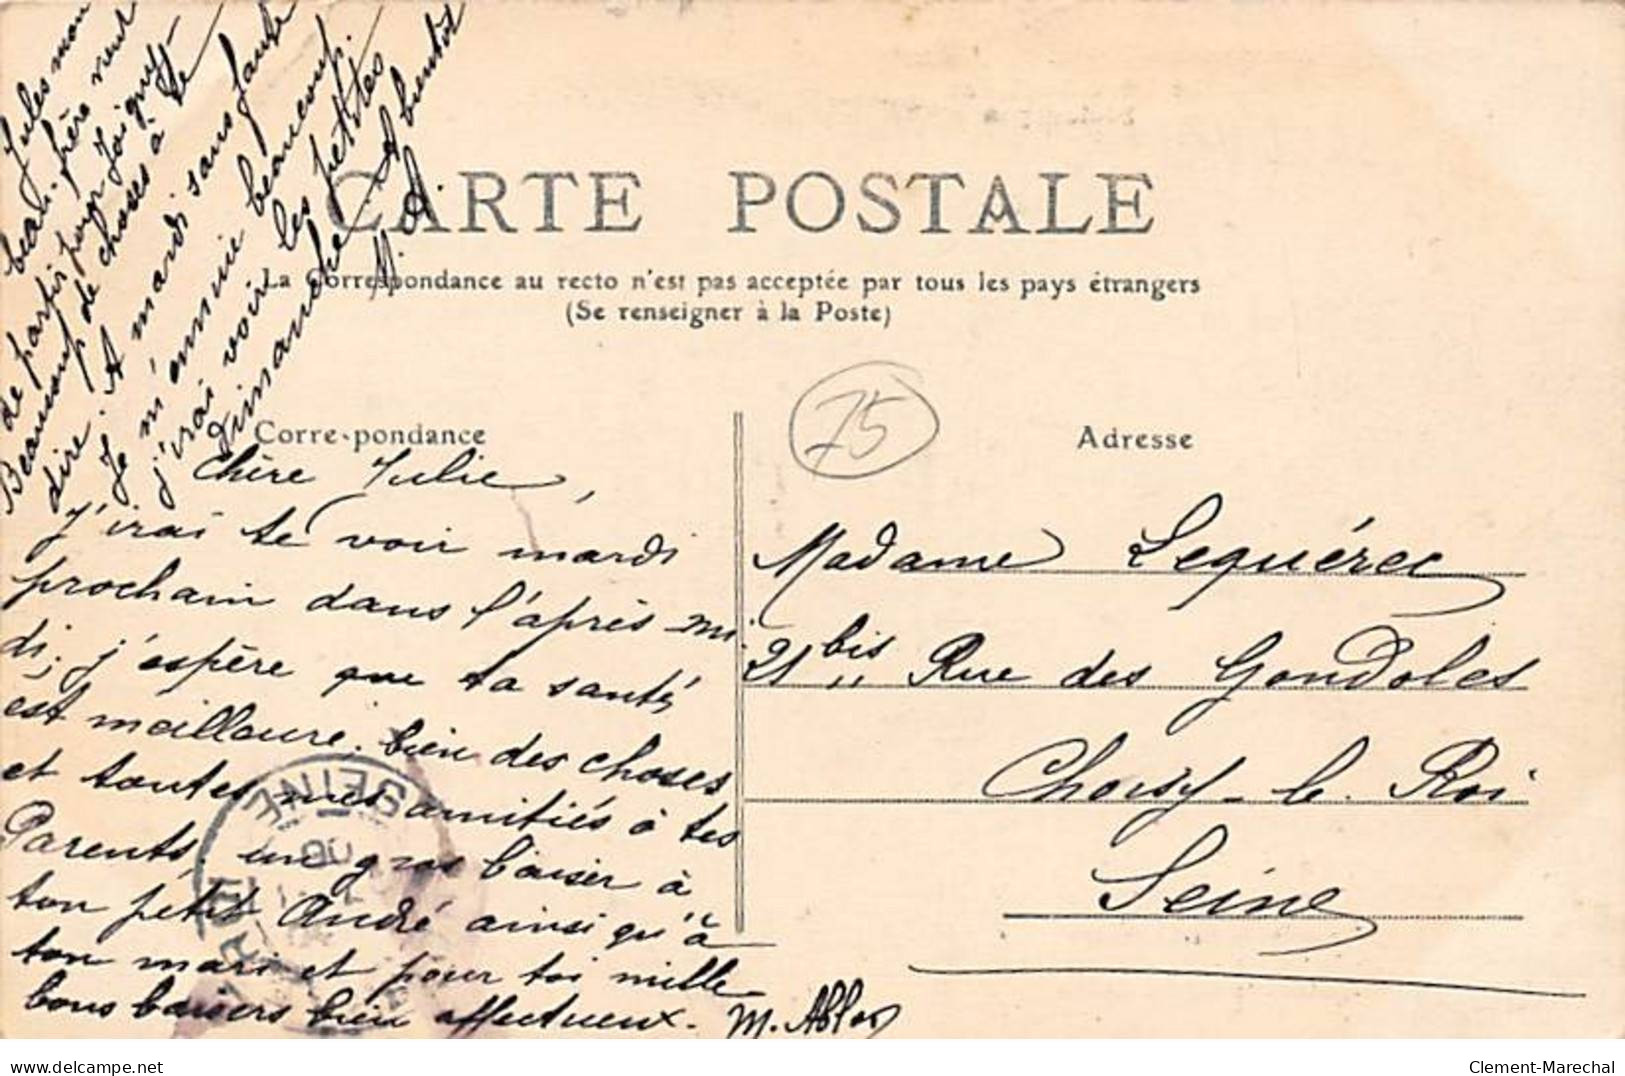 CARTE POSTALE
La Correspondance au recto n'est pas acceptée par tous les pays étrangers
(Se renseigner à la Poste)
Correspondance
Adresse
75
Chère Julie,
J'irai te voir mardi
prochain dans l'après-mi
di; j'espère que ta santé
est meilleure. bien des choses
et toutes mes amitiés à tes
Parents. un gros baiser à
ton pétit André ainsi qu'à
ton mari et pour toi mille
bons baisers bien affectueux.
Jules mon
beau-frère vient
de partir pour Joigny
Beaucoup de choses à te
dire. A mardi sans faute
Je m'ennuie beaucoup.
j'irai voire les petites
dimanche A bientôt
Madame Lequérec
21 bis Rue des Gondoles
Choisy-le-Roi
Seine
SEINE
delcampe.net
Clement-Marechal